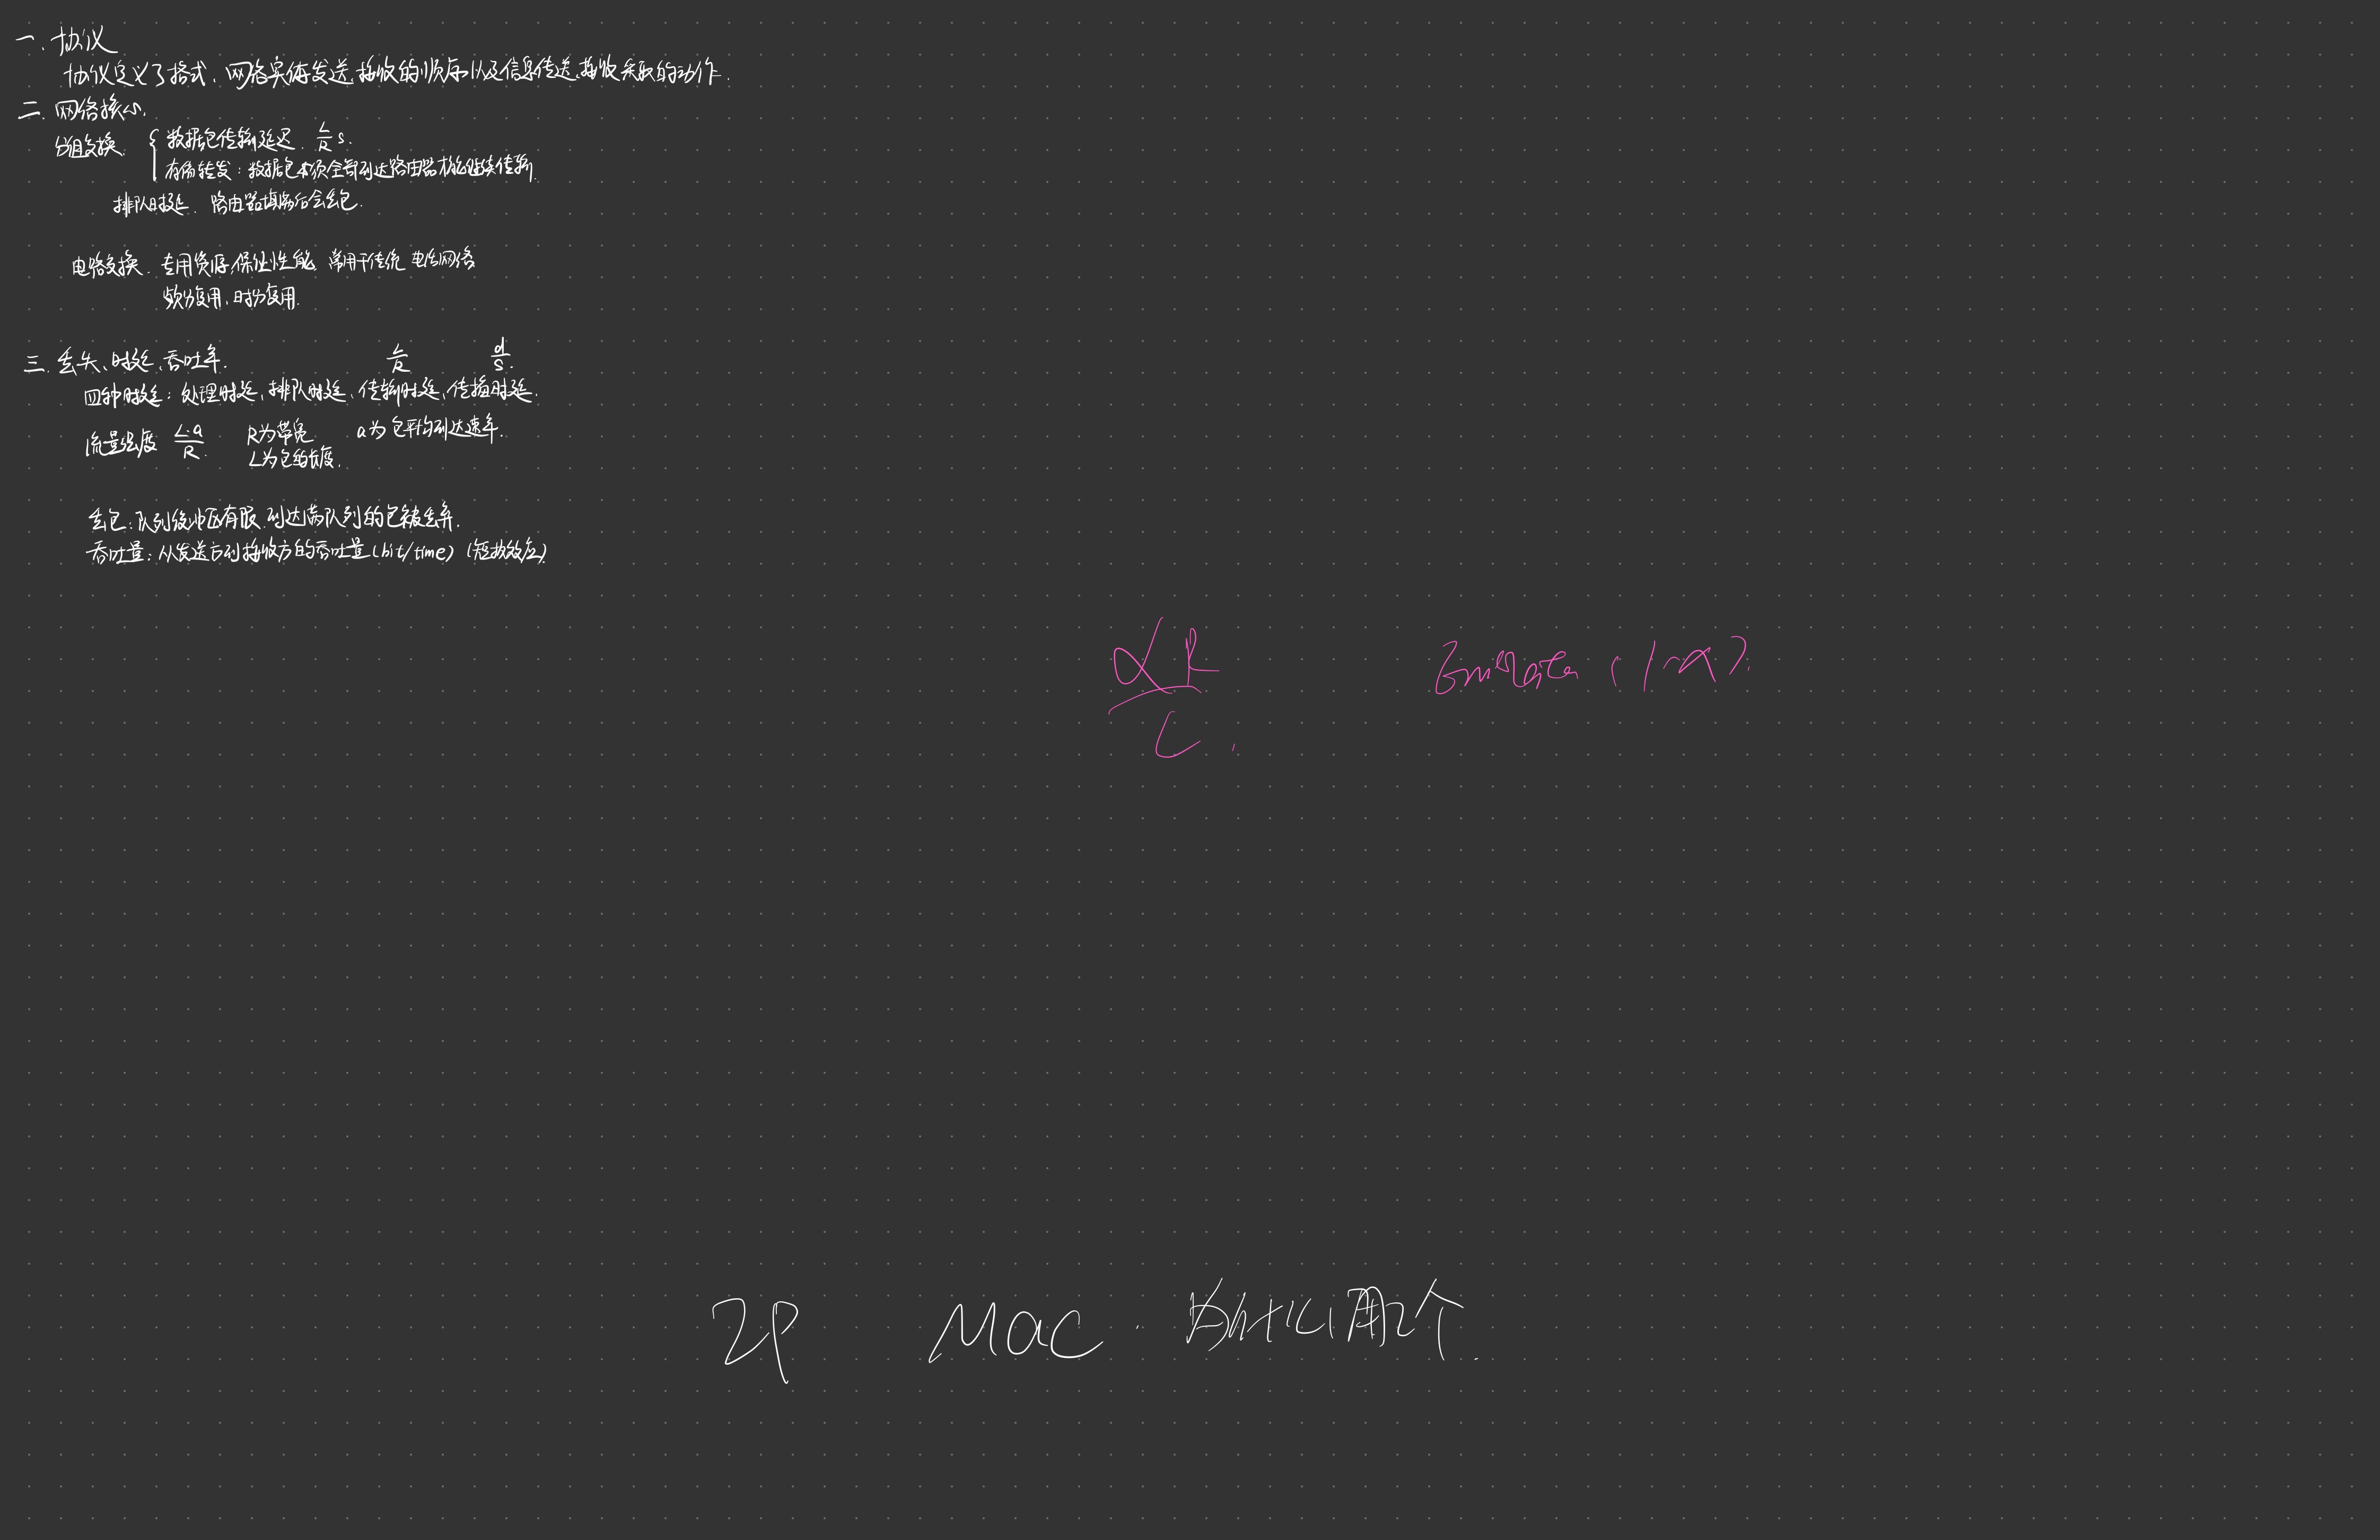 一. 协议
协议定义了格式、网络实体发送、接收的顺序以及信息传送、接收采取的动作.
二. 网络核心.
分组交换. 数据包传输延迟. L/R s.
存储转发：数据包必须全部到达路由器才能继续传输.
排队时延. 路由器填满后会丢包.
电路交换. 专用资源, 保证性能. 常用于传统电话网络
频分复用、时分复用.
三. 丢失、时延、吞吐率.
L/R d/s.
四种时延：处理时延、排队时延、传输时延、传播时延.
流量强度 L·a/R. R为带宽 a为包平均到达速率.
L为包的长度.
丢包：队列缓冲区有限. 到达满队列的包被丢弃.
吞吐量：从发送方到接收方的吞吐量(bit/time) (短板效应)
MAC.